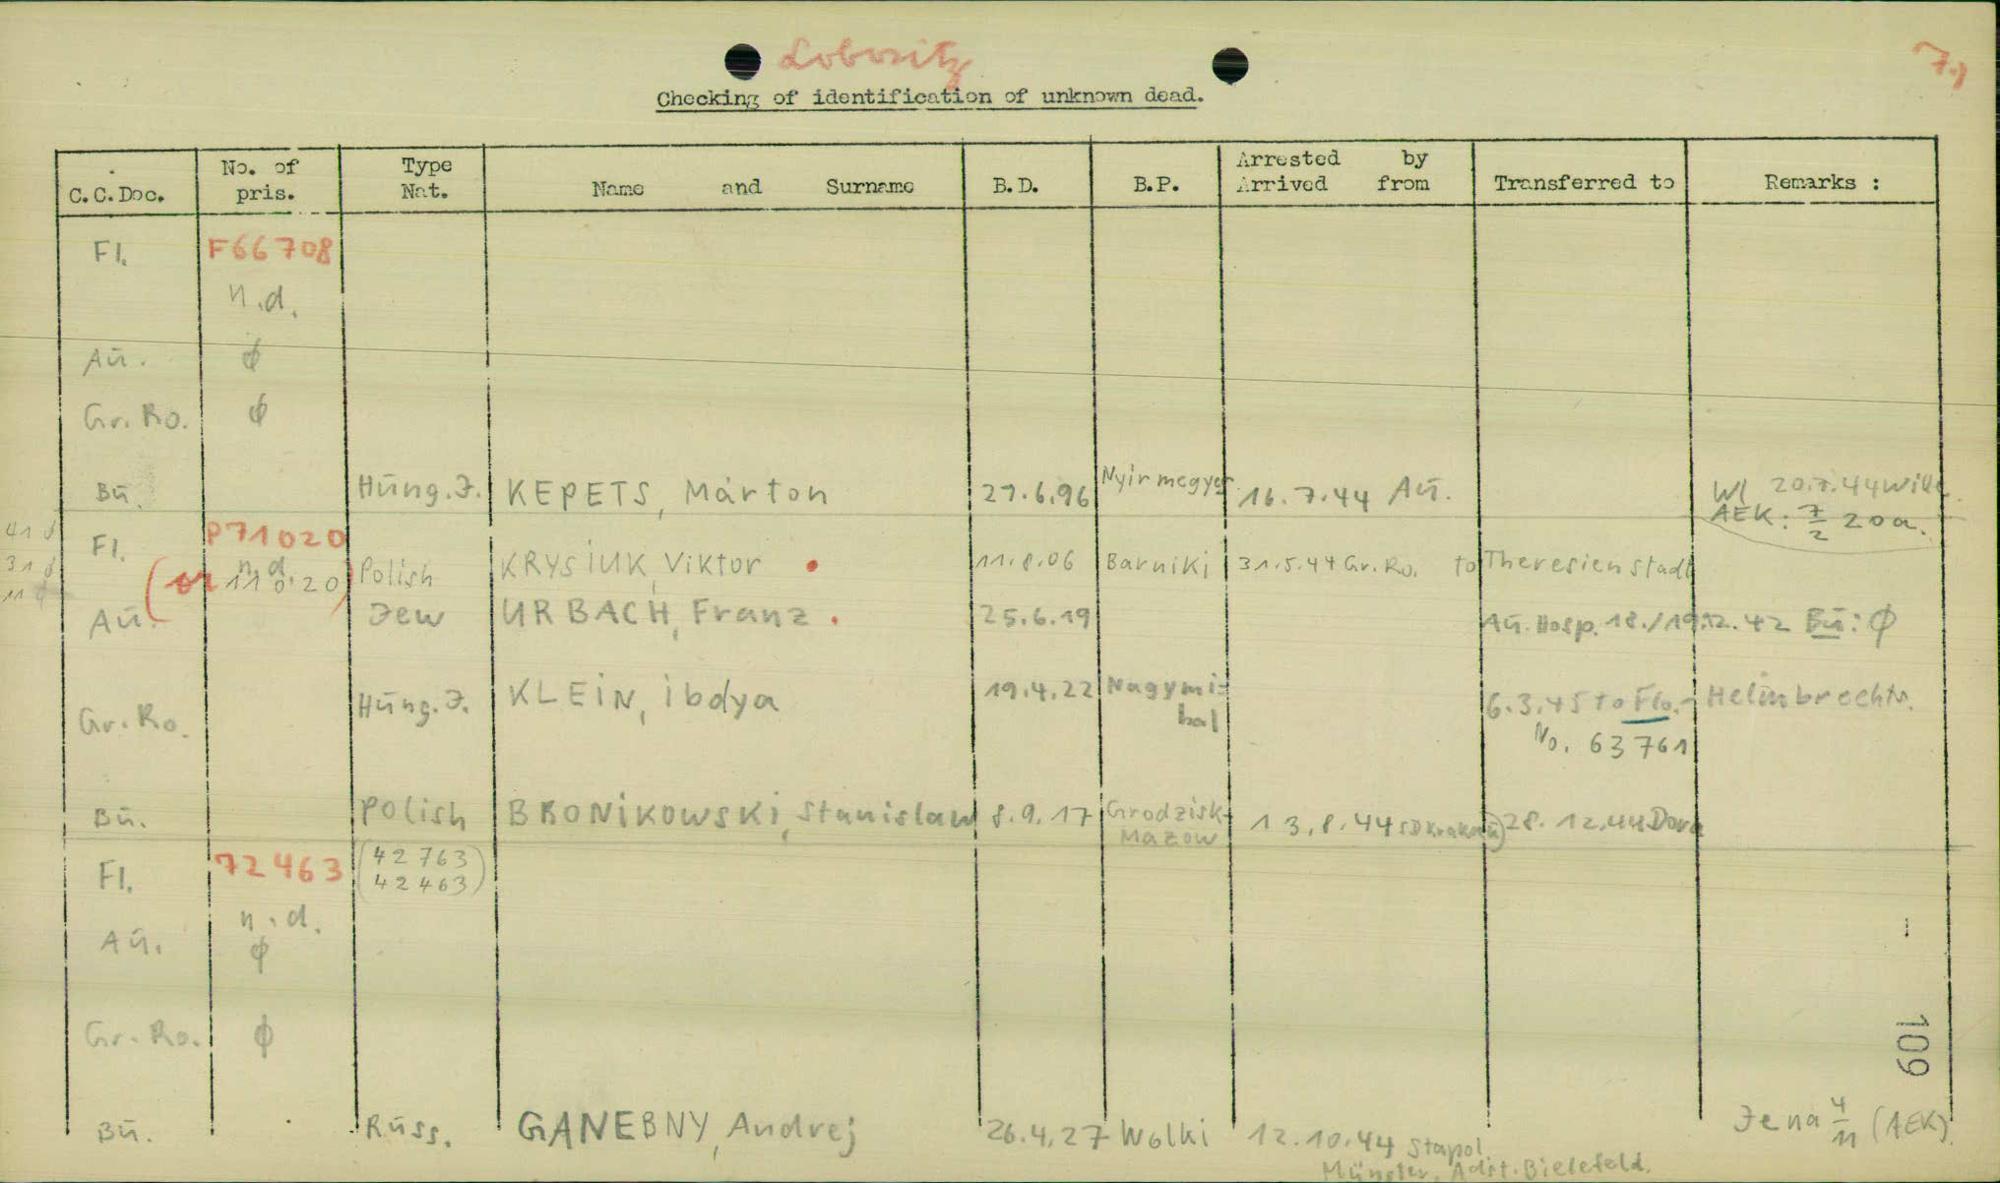 Lobositz
7.)
Checking of identification of unknown dead.
C.C.Doc. No. of pris. Type Nat. Name and Surname B.D. B.P. Arrested by Arrived from Transferred to Remarks :
Fl. F66708
n.d.
Aū. ø
Gr. Ro. ø
Bū. Hūng. J. KEPETS, Márton 27.6.96 Nyirmegyer 16.7.44 Aū. Wl 20.7.44 Wille.
AEK: 7/2 20a.
Fl. P71020
n.d.
(or 11020) Polish KRYSIUK, Viktor 11.8.06 Barniki 31.5.44 Gr. Ro. to Theresienstadt
Aū. Jew URBACH, Franz 25.6.19 Aū. Hosp. 18./19.12.42 Bū: ø
Gr. Ro. Hūng. J. KLEIN, Ibdya 19.4.22 Nagymi=
hal 6.3.45 to Flo.- Helmbrechts.
No. 63761
Bū. Polish BRONIKOWSKI, Stanislaw 8.9.17 Grodzisk-
Mazow 13.8.44 SD Krakau 28.12.44 Dora
Fl. 72463 (42763
42463)
n.d.
Aū. ø
Gr. Ro. ø
109
Bū. Rūss. GANEBNY, Andrej 26.4.27 Wolki 12.10.44 Stapol Jena 4/11 (AEK).
Münster, Adst. Bielefeld.